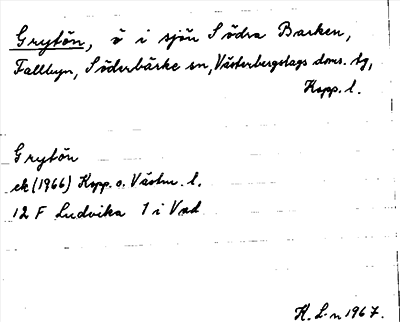 Grytön, ö i sjön Södra Barken,
Fallbyn, Söderbärke sn, Västerbergslags doms. tg,
Kopp. l.
Grytön
ek (1966) Kopp. o. Västm. l.
12 F Ludvika 1 i Vad
H. L-n 1967.